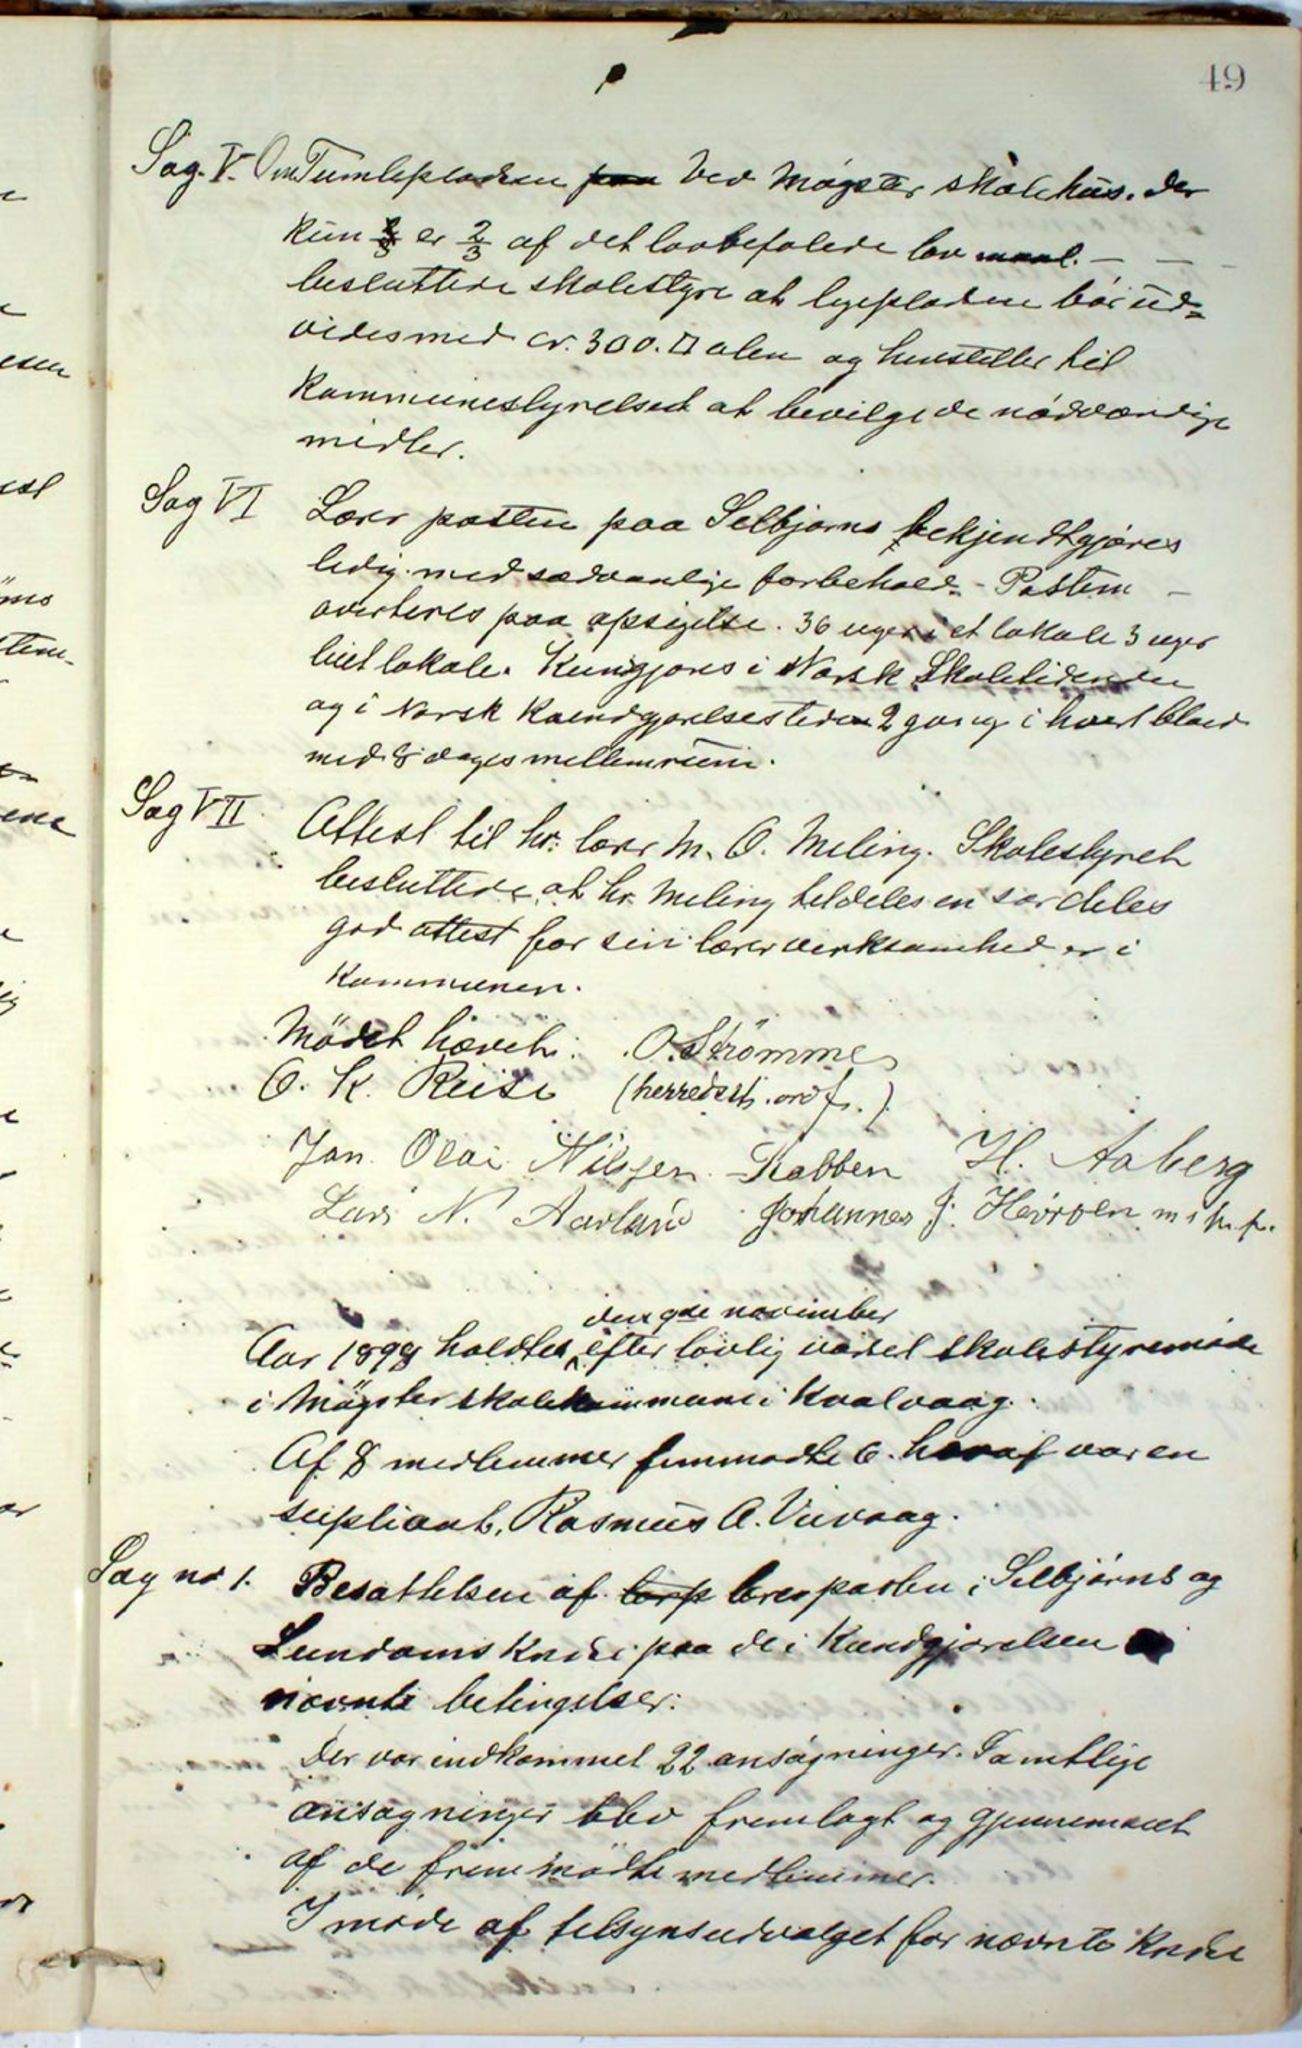 49
Sag. V. Om Tumlepladsen paa ved Møgster skolehus. der
kun er 2/3 af det lovbefalede lov maal. — — —
besluttede skolestyre at legepladsen bør ud=
vides med cr. 300. □ alen og henstiller til
Kommunestyrelsed at bevilge de nödvændige
midler.
Sag VI Lærer posten paa Selbjørns bekjendtgjøres
ledig med sædvanlige forbehold. - Posten -
averteres paa opsigelse. 36 uger i et lokale 3 uger
i et lokale. Kungjøres i Norsk Skoletidende
og i Norsk Kundgjørelsestidende 2 gang i hvert blad
med 8 dages mellemrum.
Sag VII Attest til hr. lærer M. O. Meling. Skolestyret
besluttede at hr. Meling tildeles en særdeles
god attest for sin lærervirksomhed er i
Kommunen.
Mödet hævet. O. Strømme
O. K. Reise (herredsst. ordf.)
Jan Olai Nilssen Rabben H. Aaberg
Lars N. Aarland Johannes J. Hevrøen m. p. p.
den 9de november
Aar 1898 holdtes efter lovlig varsel skolestyremøde
i Møgster skolekammers i Kvalvaag.
Af 8 medlemmer fremmødte 6. heraf var en
supliant, Rasmus A. Vivaag.
Sag no 1. Besættelsen af lærerposten i Selbjørns og
Sundøms Kreds i paa de i Kundgjørelsen
nævnte betingelser:
Der var indkommet 22 ansøgninger. Samtlige
ansøgninger blev fremlagt og gjennemseet
af de fremmødte medlemmer.
I møde af tilsynsudvalget for nævnte Kreds